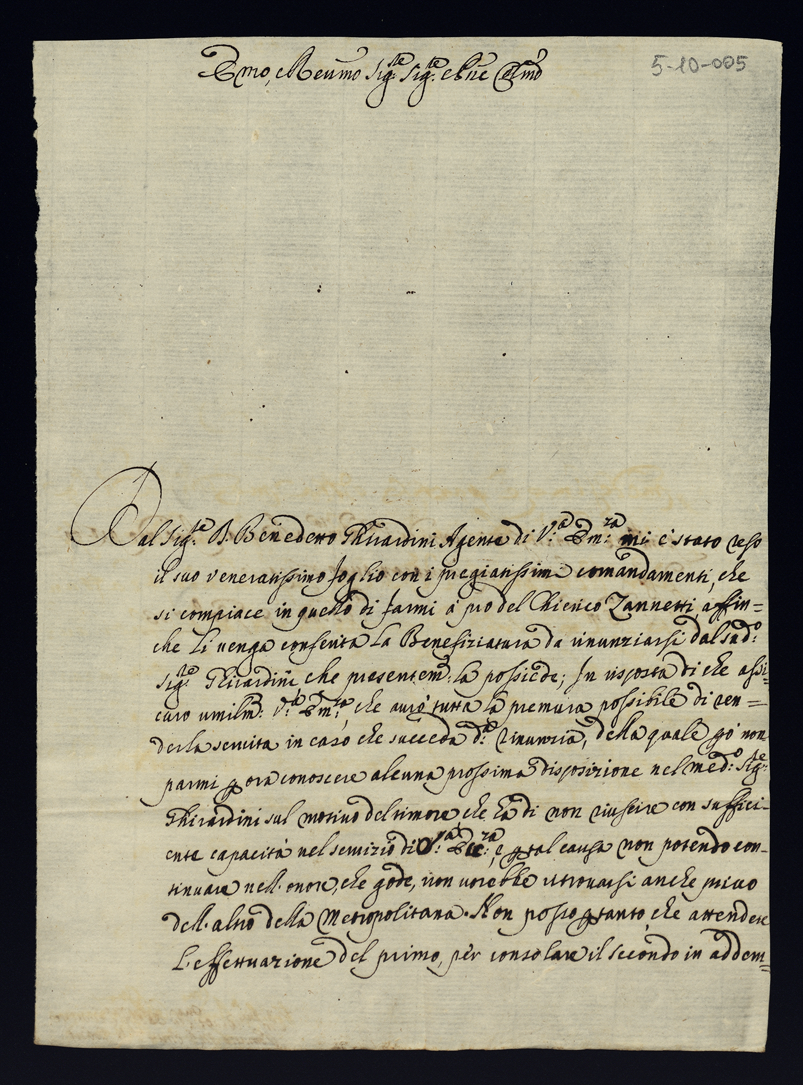 Emo, e Reumo Sig.re Sig.re e Pne Colmo
5-10-005
Dal Sig.re D. Benedetto Ghirardini Agente di V.a Em.za mi è stato reso
il suo veneratissimo foglio con i pregiatissimi comandamenti, che
si compiace in quello di farmi à prò del Chierico Zannetti affin=
che li venga conferita la Benefiziatura da rinunziarsi dal sud.o
Sig.re Ghirardini che presentem.e la possiede; In risposta di che assi-
curo umilm.e V.a Em.za, che avrò tutta la premura possibile di ren=
derla servita in caso che succeda d.a rinunzia, della quale però non
parmi p ora conoscere alcuna prossima disposizione nel med.o Sig.re
Ghirardini sul motivo del timore che hà di non riuscire con suffici-
ente capacità nel servizio di V.a Em.za, e p tal causa non potendo con-
tinuare nell'onore, che gode, non vorebbe ritrovarsi anche privo
dell'altro della Metropolitana. Non posso ptanto che attendere
l'effettuazione del primo, per consolare il secondo in adem=